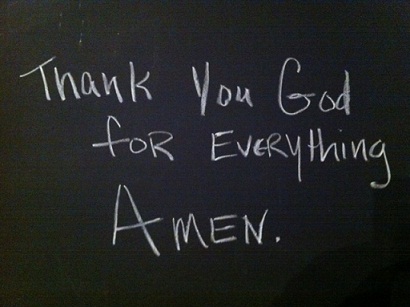 Thank You God
for Everything
Amen.